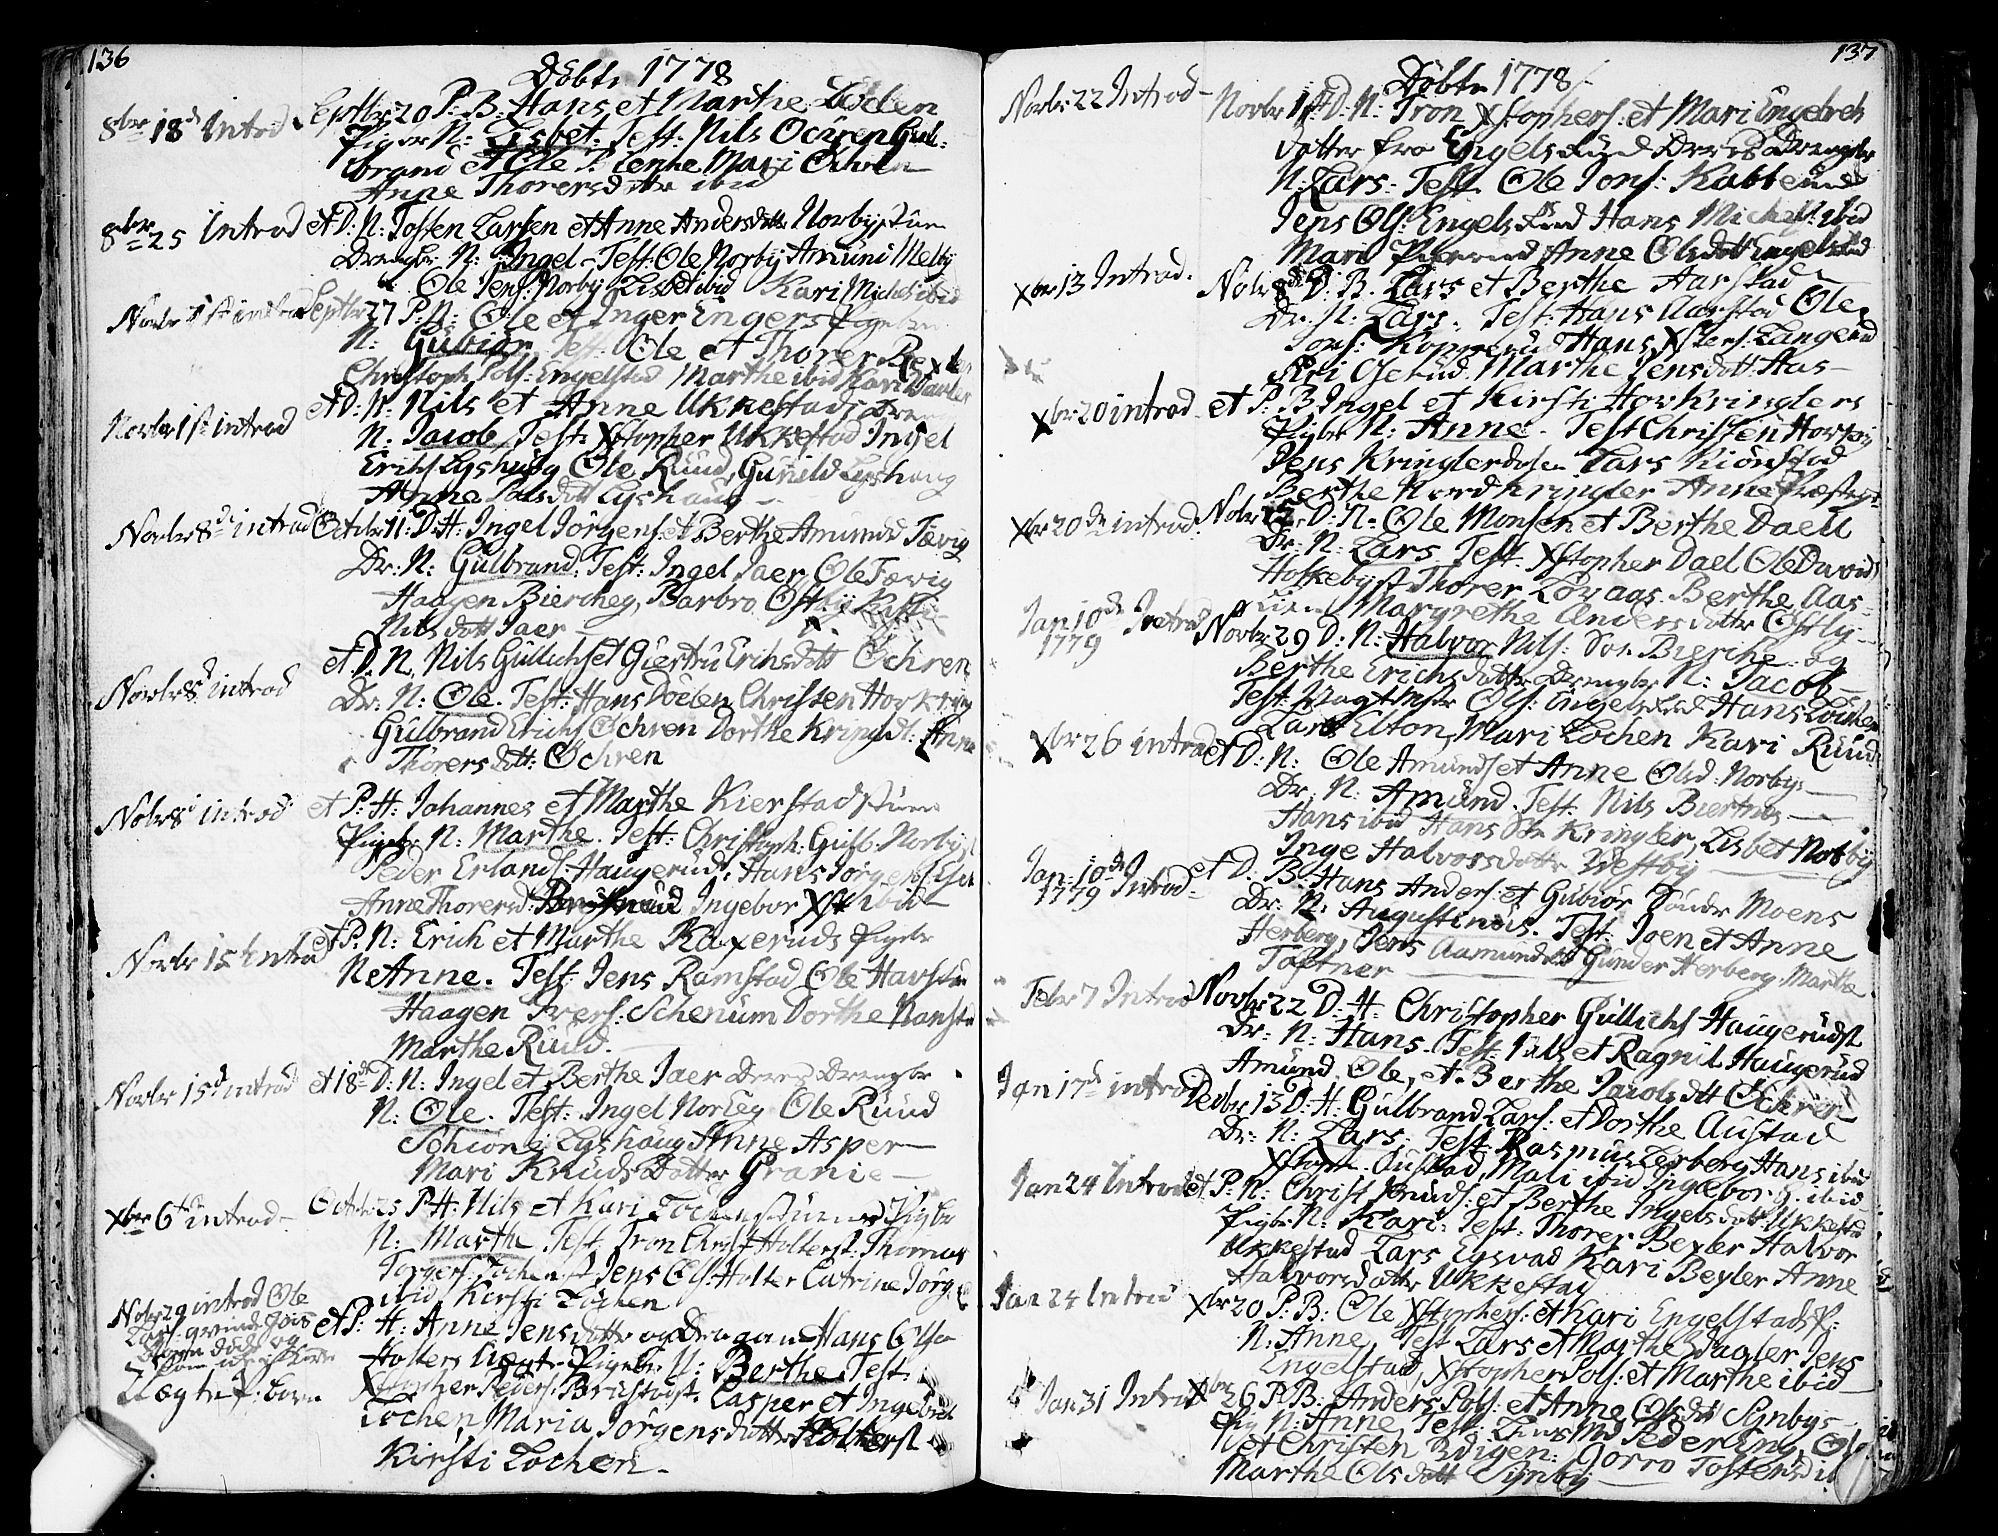 136
Döbte 1778
8br 18d Introd Septbr 20 P: B: Hans et Marthe Lochen
Pigebr N: Lisbet. Test: Nils Ochren Gul-
brand et Ole P. Mari Ochren
Anne Thorersdotter ibid
8br 25 Introd et D: N: Tosten Larsen et Anne Andersdotter Norbystuen
Drengbr: N: Ingel - Test: Ole Norby Amund Melby
Ole Jens: Norby Lisbet ibid Kari Michels ibid
Novbr 1st introd Septbr 27 P: N: Ole et Inger Engers Pigebr
N: Gubiör Test: Ole et Thorer Bexler
Christoph Pols: Engelstad Marthe ibid Kari
Novbr 1st introd et D: N: Nils et Anne Ukkestads Dreng
N: Jacob, Test: Xstopher Ukkestad Ingel
Erichs Lyshaug Ole Ruud, Gunild Lyshaug
Anne Polsdott Lyshaug -
Novbr 8de introd Octobr 11: D: H: Ingel Jörgens: et Berthe Amunds Tævig
Dr: N: Gulbrand: Test: Ingel Jaer Ole Tævig
Haagen Biercheg, Barbro Ostby
Nilsdott Jaer -
Novbr 8d introd et D. N. Nils Gullichs et Giertru Erichsdott Ochren
Dr: N: Ole. Test: Hans Doelen Christen Hovkring
Gulbrand Erichs Ochren Dorthe Kringl: Anne
Thorersdott: Ochren
Nobr 8d introd et P: H: Johannes et Marthe Kierstadstuen
Pigebr N: Marthe. Test: Christoph: Gulb: Norby
Peder Erlands: Haugerud, Hans Jörgens
Anne Thorersd: Ingebor ibid
Novbr 15 Introd et P. N: Erich et Marthe Kaxeruds Pigebr
N: Anne. Test: Jens Ramstad Ole
Haagen Ivers: Schenum Dorthe Ramstad
Marthe Ruud.
Novbr 15d introd et 18de D: N: Ingel et Berthe Jaer Deres Drengbr
N: Ole. Test: Ingel Norbey Ole Ruud
Schiönne Lyshaug Anne Asper
Mari Knuds Dotter Granie
Xbr 6te introd - Octobr 25 P: H: Nils et Kari Lochenstuens Pigebr
N: Marthe Test: Tron Christ: Holterst: Thomas
Torgers: Lochenst Jens Ols: Holter Catrine Jörg
ibid Kirsti Lochen
Novbr 29 introd Ole et P: H: Anne Jensdotter og Dragoun Hans
Lars: qvinde
dödf. og Holters Uægte Pigebr: N: Berthe Test:
Xstopher Peders: Brustad Casper et Ingebor
Uægtef: barn Lochen, Maria Jörgensdotter Holterst
Kirsti Lochen -
137
Döbte 1778
Novbr 22 Introd - Novbr 1st D: N: Tron Xstophers: et Mari Engebret
datter fra Engelsrud Deres Drengebr
N: Lars - Test: Ole Jons: Kabberud
Jens Ols: Engelsrud Hans Michels: ibid
Mari Anne Olsdott Engelsrud
Xbr 13 Introd. Nobr 8de D: B. Lars et Berthe Aarstad
Dr. N: Lars. Test: Hans Aarstad Ole
Jons: Kopperud Hans Xstens: Langerud
Siri Oserud Marthe Jensdott Aas -
Xbr 20 introd et P: B Ingel et Kirsti Hovkringlers
Pigebr N: Anne. Test Christen Hovby
Jens Kringlerdalen Lars Kiönstad
Berthe Nordkringler Anne Præsteg:
Xbr 20de introd: Nobr 15. D: N. Ole Monsen et Berthe Daell
Dr. N: Lars Test: Xstopher Dael Ole Davids
Holkebyst Thorer Lövaas. Berthe Aas-
Margrethe Andersdotter Ostby
Jan 10de Introd Novbr 29 D: N: Halvor Nils: Sör Bierche og
1779 Berthe Erichsdotter Drengbr N: Jacob -
Test: Ols: Engelsrud Hans Lochen
Lars Elton, Mari Lochen Kari Ruud
Xbr 26 introd et D: N: Ole Amunds et Anne Olsd: Norbys
Dr. N: Amund. Test: Nils Biertnes -
Hans ibid Hans Kringler, Lisbet Norby
Inge Halvorsdotter Westby
Jan: 10de et D. B: Hans Anders: et Gubiör Söndr Moens
1779 Introd - Dr: N: Augustinus. Test: Joen et Anne
Herberg, Jens Aamund Gunder Herberg, Marthe
Toftner
Febr 7 Introd Novbr 22 D: H: Christopher Gullichs Haugerudst
Dr: N: Hans. Test: Nils et Ragnil Haugerud
Amund Ole, et Berthe Jacobsdtt Ochren
Jan 17d introd Decbr 13 D: H: Gulbrand Lars: et Dorthe Austad
Dr: N: Lars. Test: Rasmus Herberg Hans ibid
Xstoph. Austad Mali ibid Ingeborg ibid
Jan 24 Introd et P: N: Christ: Knuds: et Berthe Ingelsdott Ukkestad
Pigbr N: Kari: Test: Thorer Bexler Halvor
Ukkestad Lars Egsvad Kari Bexler Anne
Halvorsdotter Ukkestad
Jan 24 Introd Xbr 20 P: B: Ole Xstophers: et Kari Engelstads P:
N: Anne Test: Lars et Marthe Jens
Engelstad, Xstopher Pols: et Marthe ibid
Jan 31 Introd Xbr 26 P. B: Anders Pols: et Anne Olsdt Synbys -
Pig N: Anne Test: Peder Eng, Ole
et Christen Böigen: Gorro Tostensd:
Marthe Olsdott Synby